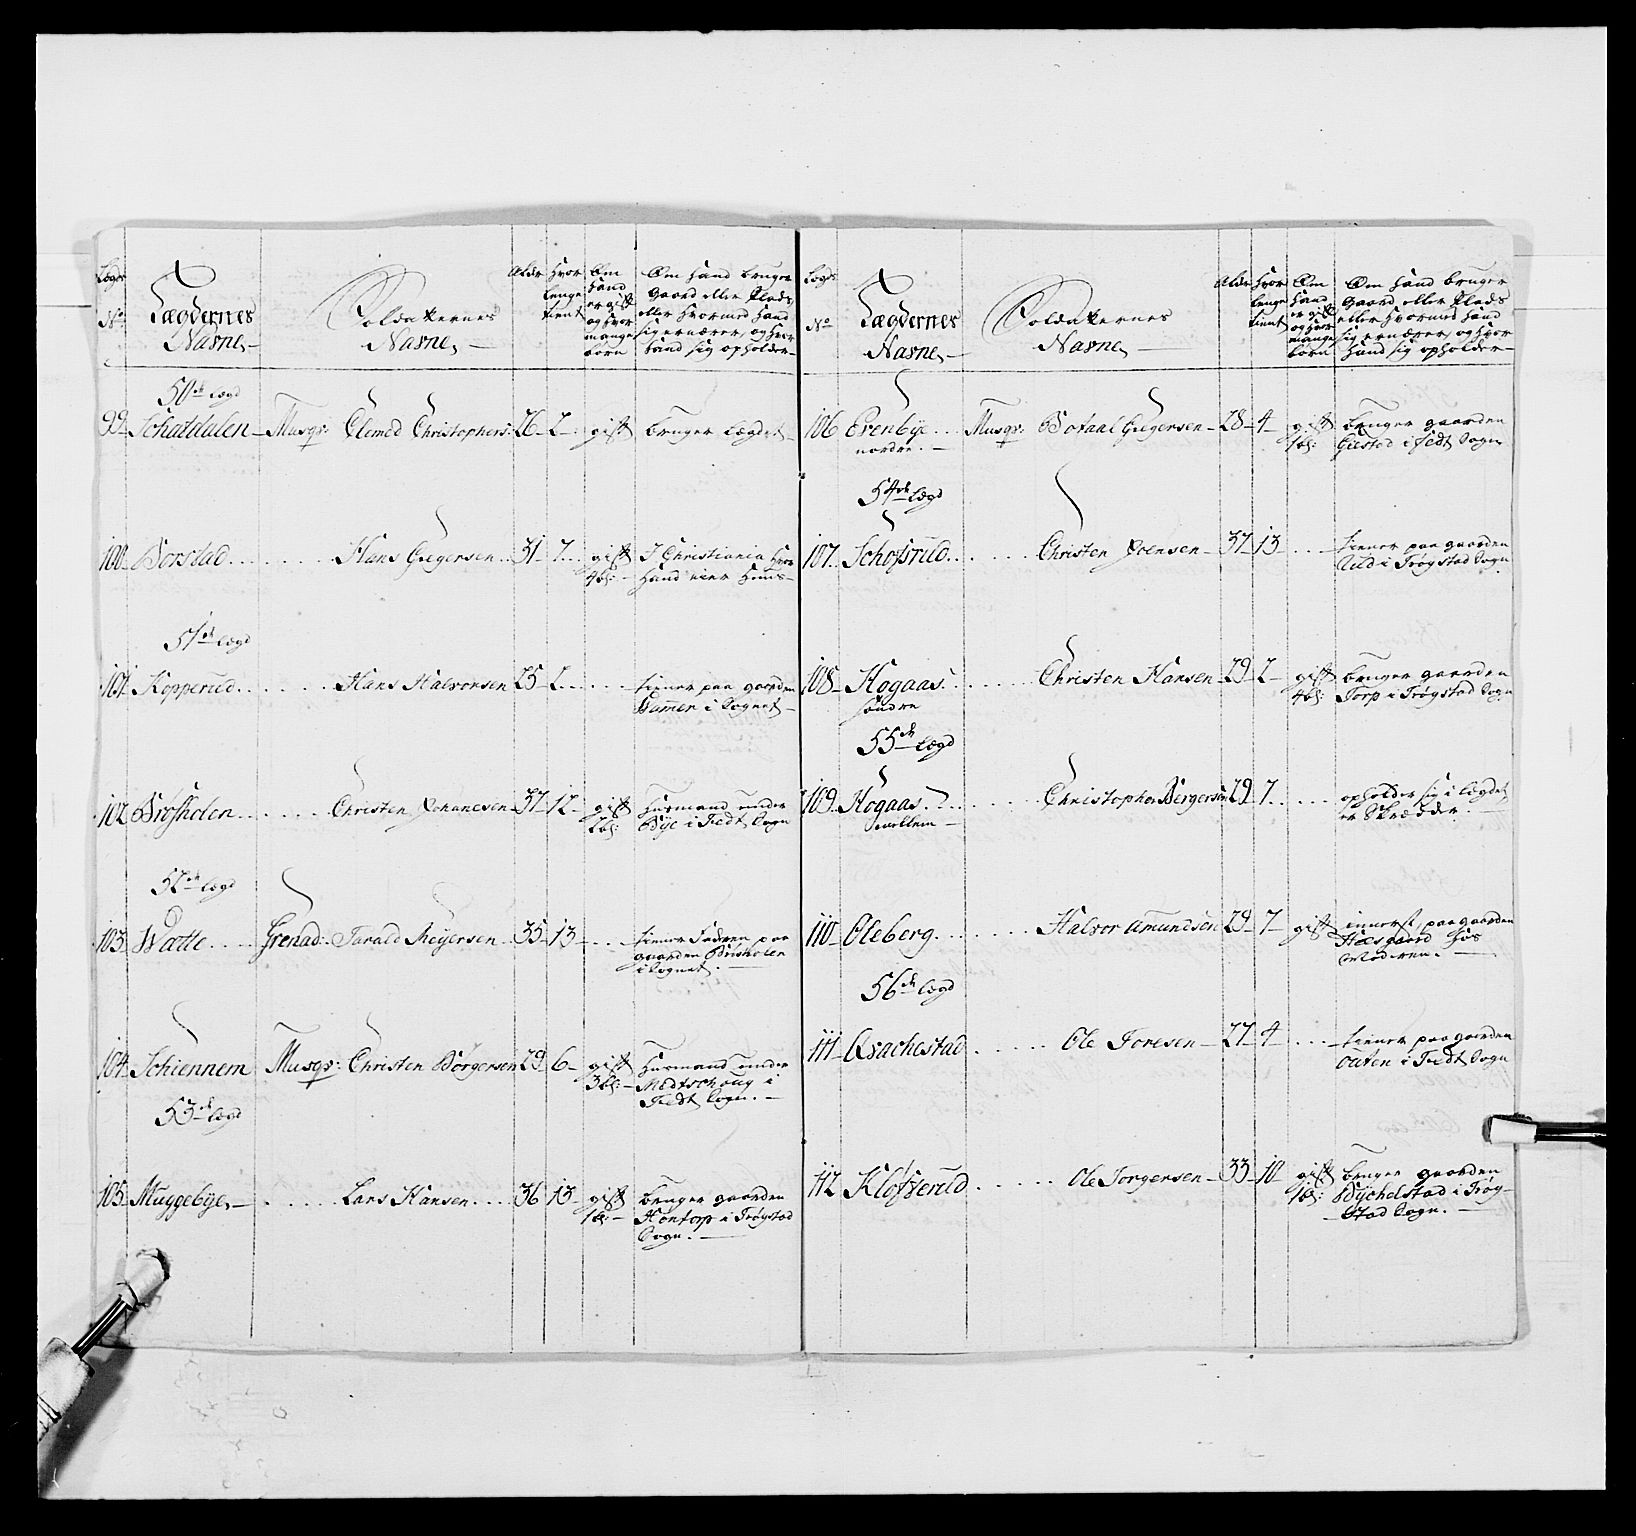 Lægs No
Lægdernes Nafne,
Soldaternes Nafne,
Aldr
Hvor lenge tient
Om hand er gift og hvor mange børn
Om hand bruger gaard eller Plads eller hvormed hand sig ernærer, og hvor hand sig opholder
50de Lægd
99 Schatdalen Musqr: Clemed Christophers: 26 2 gift bruger Lægdet
100 Borstad Hans Gregersen 31 7 gift 4 b: I Christiania hvor
hand eier huus
51de Lægd
101 Kopperud Hans Halvorsen 25 2 tienner paa gaarden
Ramen i Sognet
102 Brøsholen Christen Johanesen 37 12 gift 2 b: huusmand under
Bye i Eedt Sogn
52de Lægd
103 Watte Grenad: Tarald Meyersen 35 13 tienner Fadren paa
gaarden Brisholen
i Sognet.
104 Schiennem Musqr: Christen Børgersen 29 6 gift 3 b: huusmand under
Medtschoug i
Eedt Sogn.
53de Lægd
105 Muggebye, Lars Hansen 36 13 gift 1 b: bruger gaarden
Hontorp i Trøgstad
Sogn.
Lægs No
Lægdernes Nafne,
Soldaternes Nafne,
Aldr
Hvor lenge tient
Om hand er gift og hvor mange børn
Om hand bruger gaard eller Plads eller hvormed hand sig ernærer, og hvor hand sig opholder
106 Erenbye Musqr: Botaal Gregersen 28 4 gift 1 b: bruger gaarden
nordre. Giestad i Eedt Sogn
54de Lægd
107 Schofsrud Christen Joensen 37 13 tienner paa gaarden
Lild i Trøgstad Sogn
108 Høgaas Christen Hansen 29 2 gift 4 b: bruger gaarden
søndre Torp i Trøgstad Sogn
55de Lægd
109 Høgaas Christopher Bergersen 29 7 opholder sig i Lægdet
mellem er Skrædder.
110 Oleberg Halvor Amundsen 29 7 gift innerst paa gaarden
Haesgaard hos
Moderen.
56de Lægd
111 Asachestad Ole Toresen 27 4 tienner paa gaarden
Outen i Eedt Sogn
112 Kløfserud Ole Jorgensen 33 10 gift 1 b: bruger gaarden
Bychelstad i Trøg-
stad Sogn.